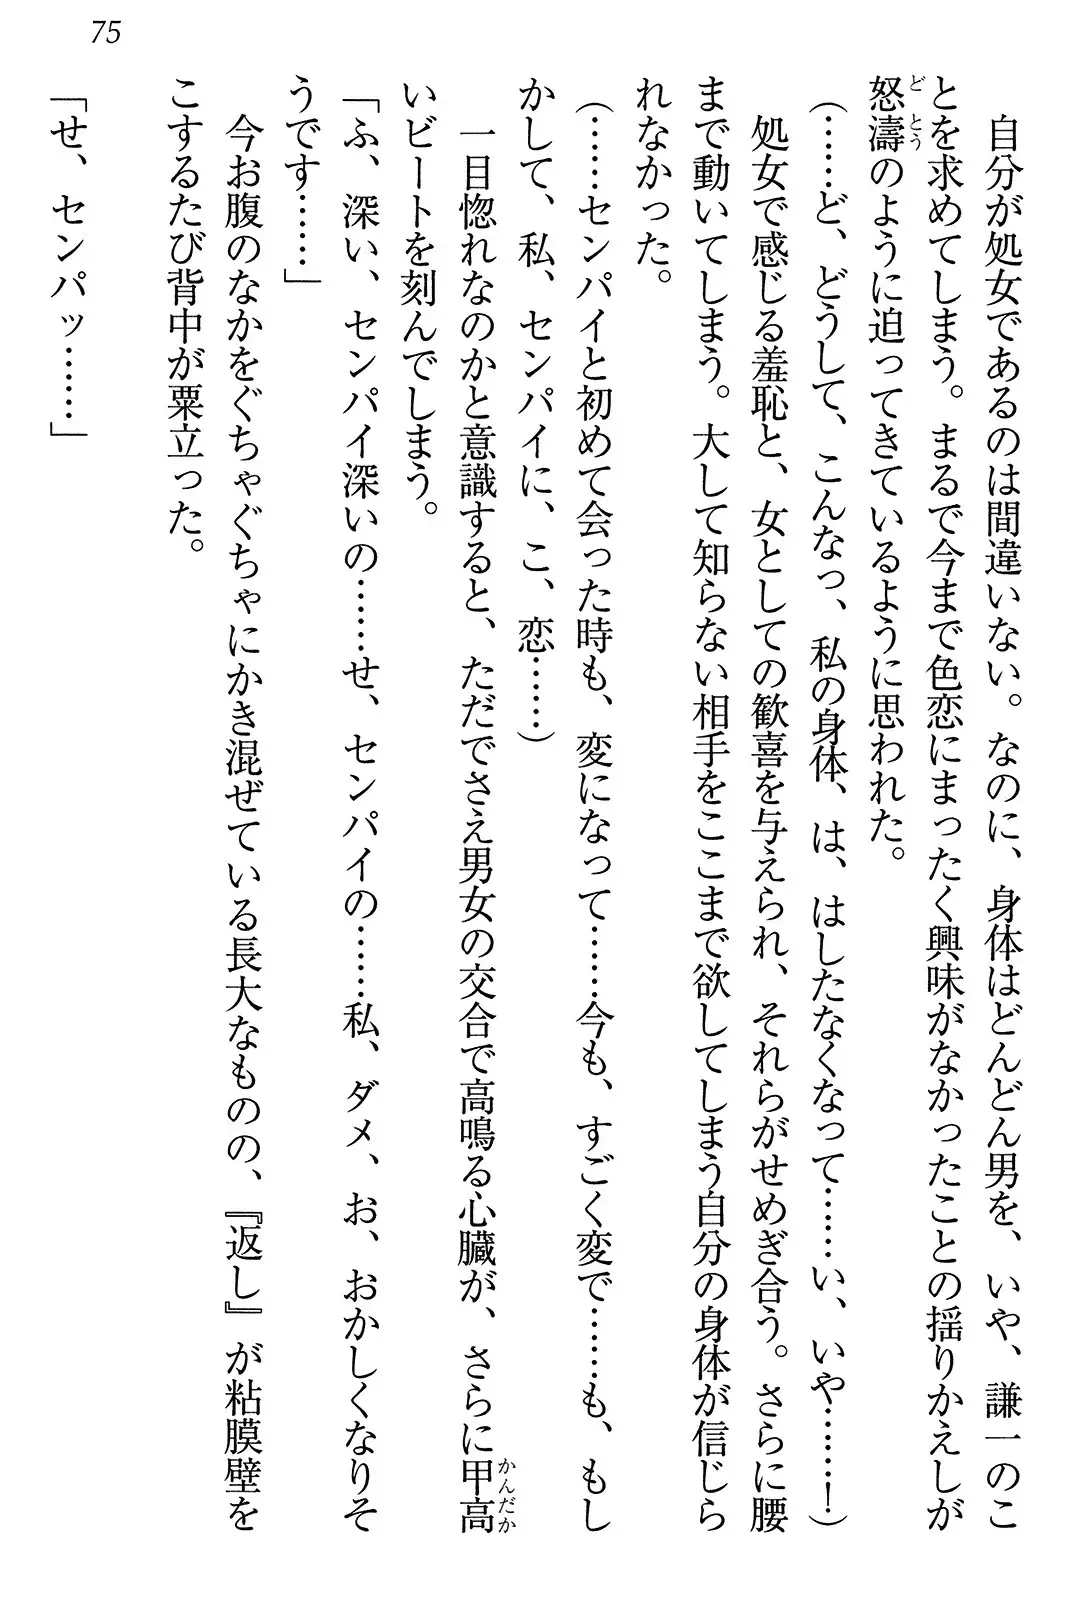 75
自分が処女であるのは間違いない。なのに、身体はどんどん男を、いや、謙一のこ
とを求めてしまう。まるで今まで色恋にまったく興味がなかったことの揺りかえしが
怒濤のように迫ってきているように思われた。
（……ど、どうして、こんなっ、私の身体、は、はしたなくなって……い、いや……！）
処女で感じる羞恥と、女としての歓喜を与えられ、それらがせめぎ合う。さらに腰
まで動いてしまう。大して知らない相手をここまで欲してしまう自分の身体が信じら
れなかった。
（……センパイと初めて会った時も、変になって……今も、すごく変で……も、もし
かして、私、センパイに、こ、恋……）
一目惚れなのかと意識すると、ただでさえ男女の交合で高鳴る心臓が、さらに甲高
いビートを刻んでしまう。
「ふ、深い、センパイ深いの……せ、センパイの……私、ダメ、お、おかしくなりそ
うです……」
今お腹のなかをぐちゃぐちゃにかき混ぜている長大なものの、『返し』が粘膜壁を
こするたび背中が粟立った。
「せ、センパッ……」